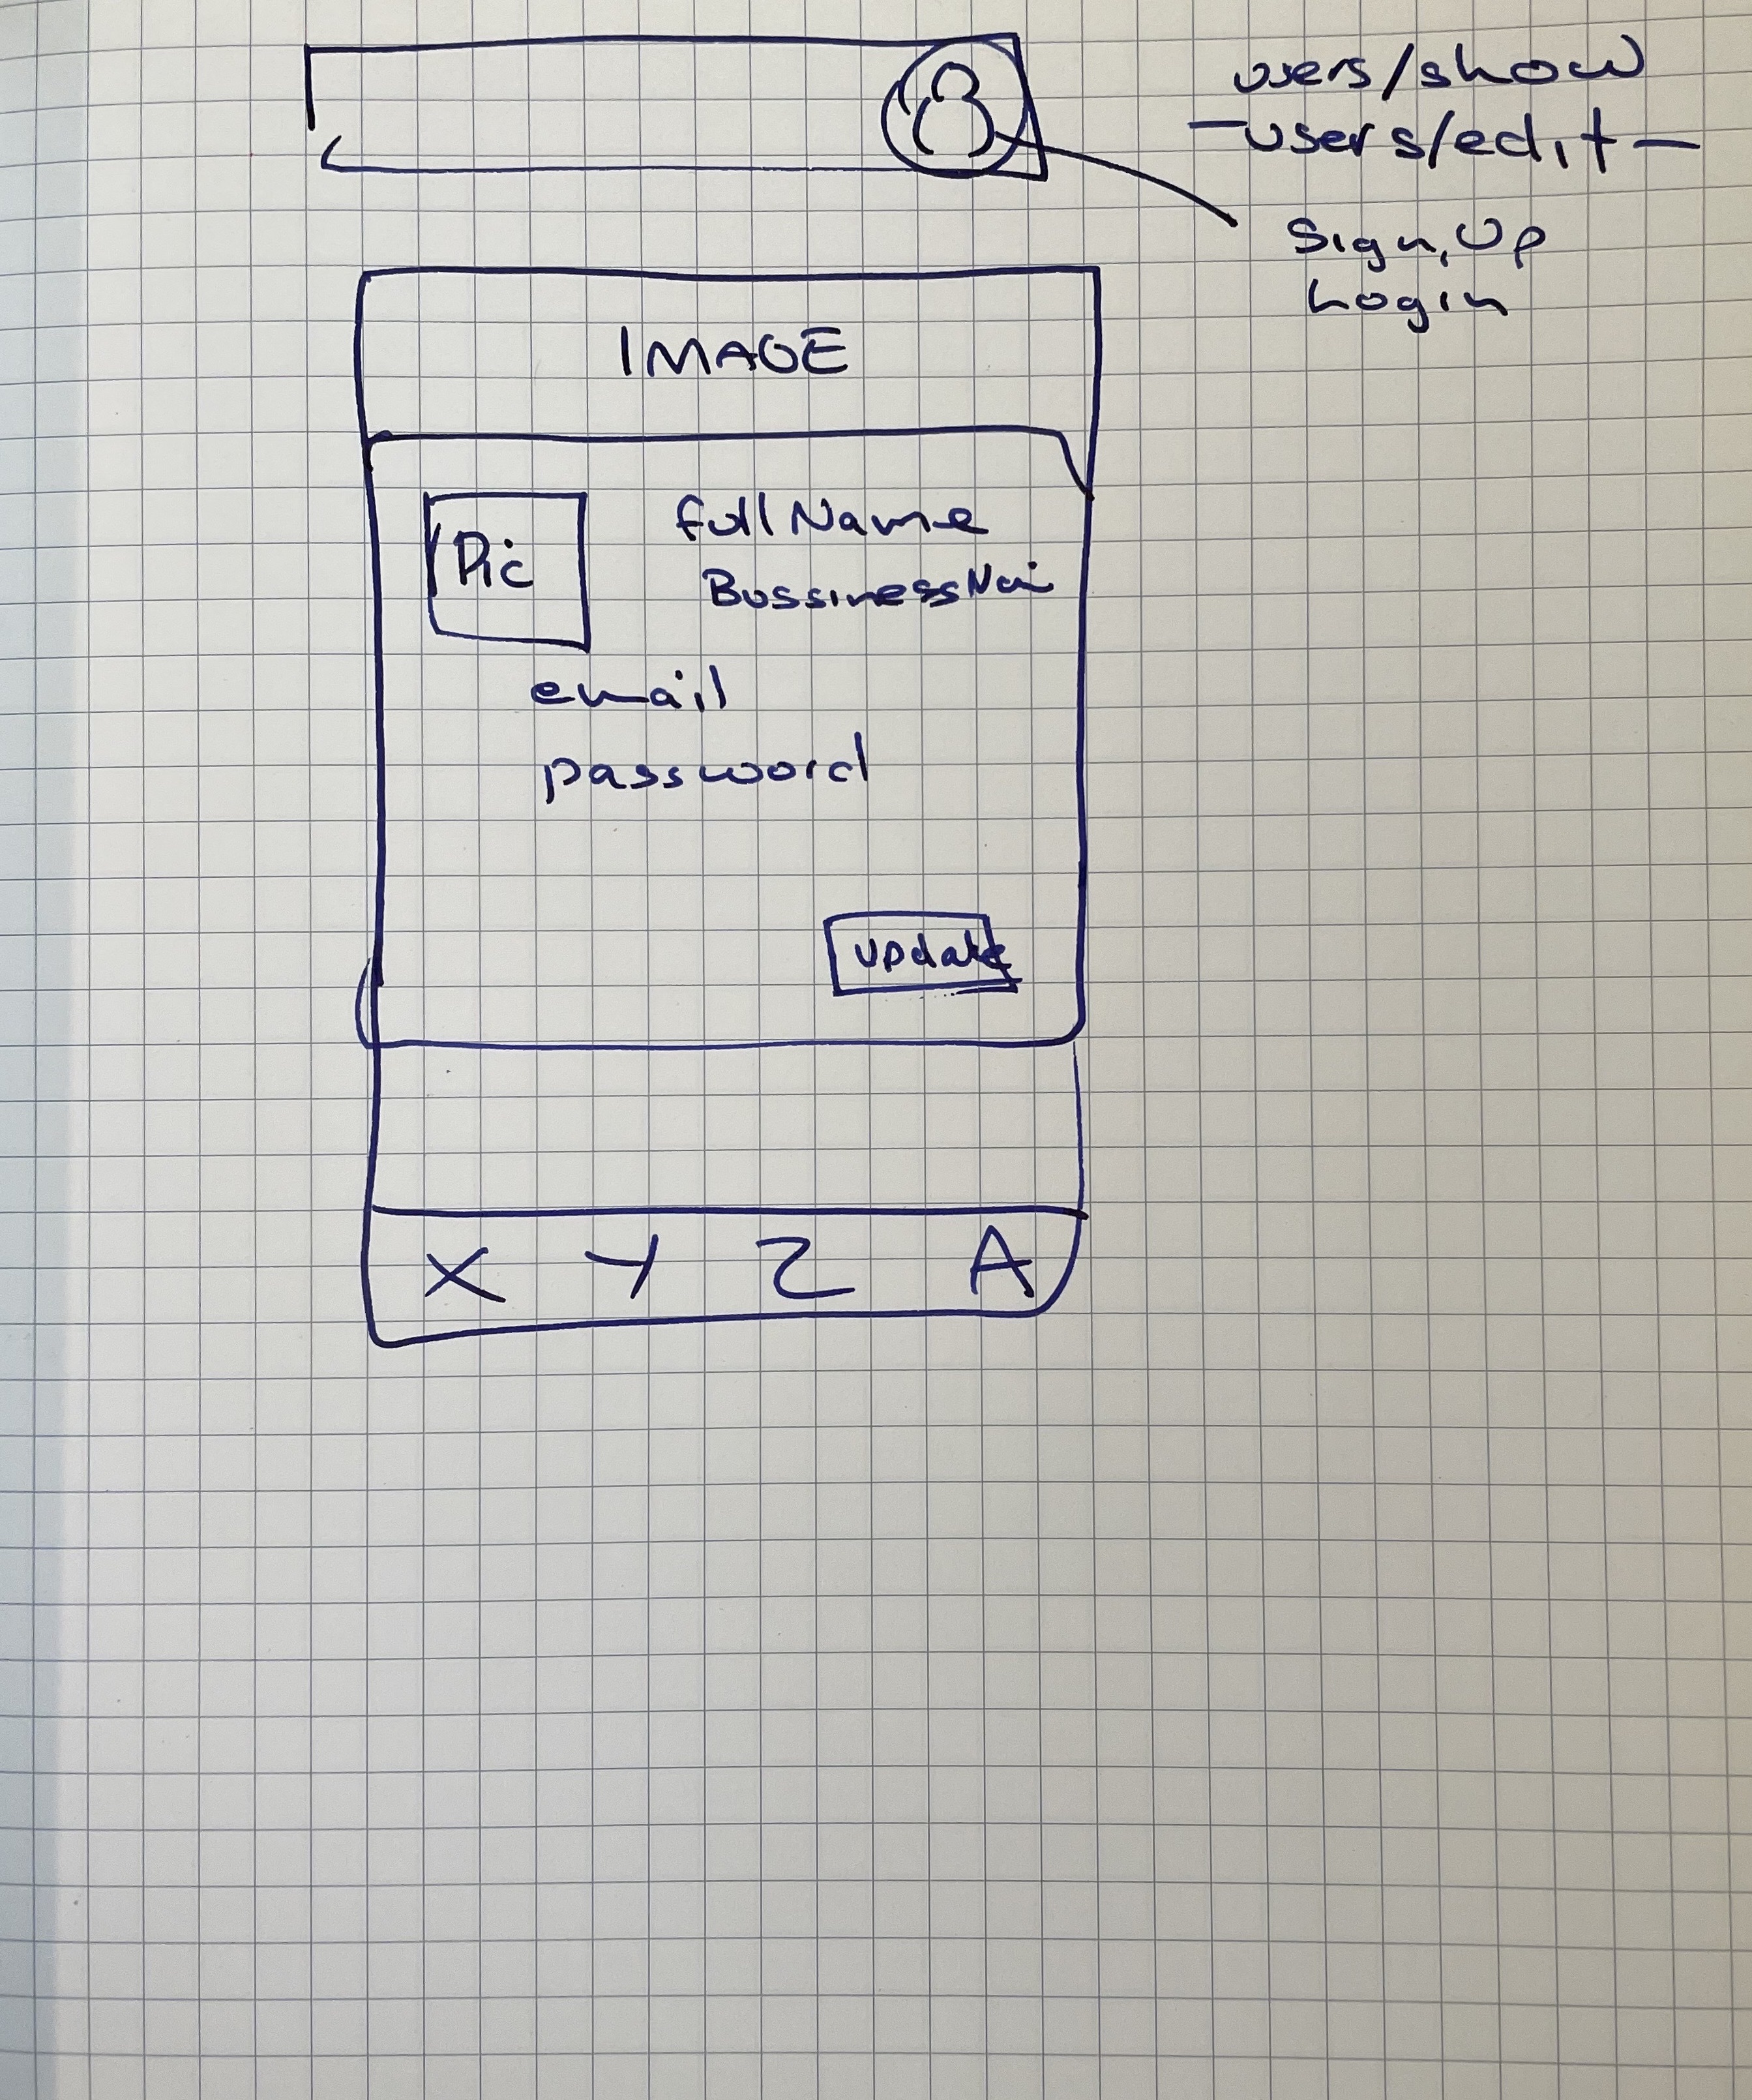 users/show
-users/edit-
Sign Up
Login
IMAGE
Pic
fullName
BussinessNa
email
password
update
X Y Z A